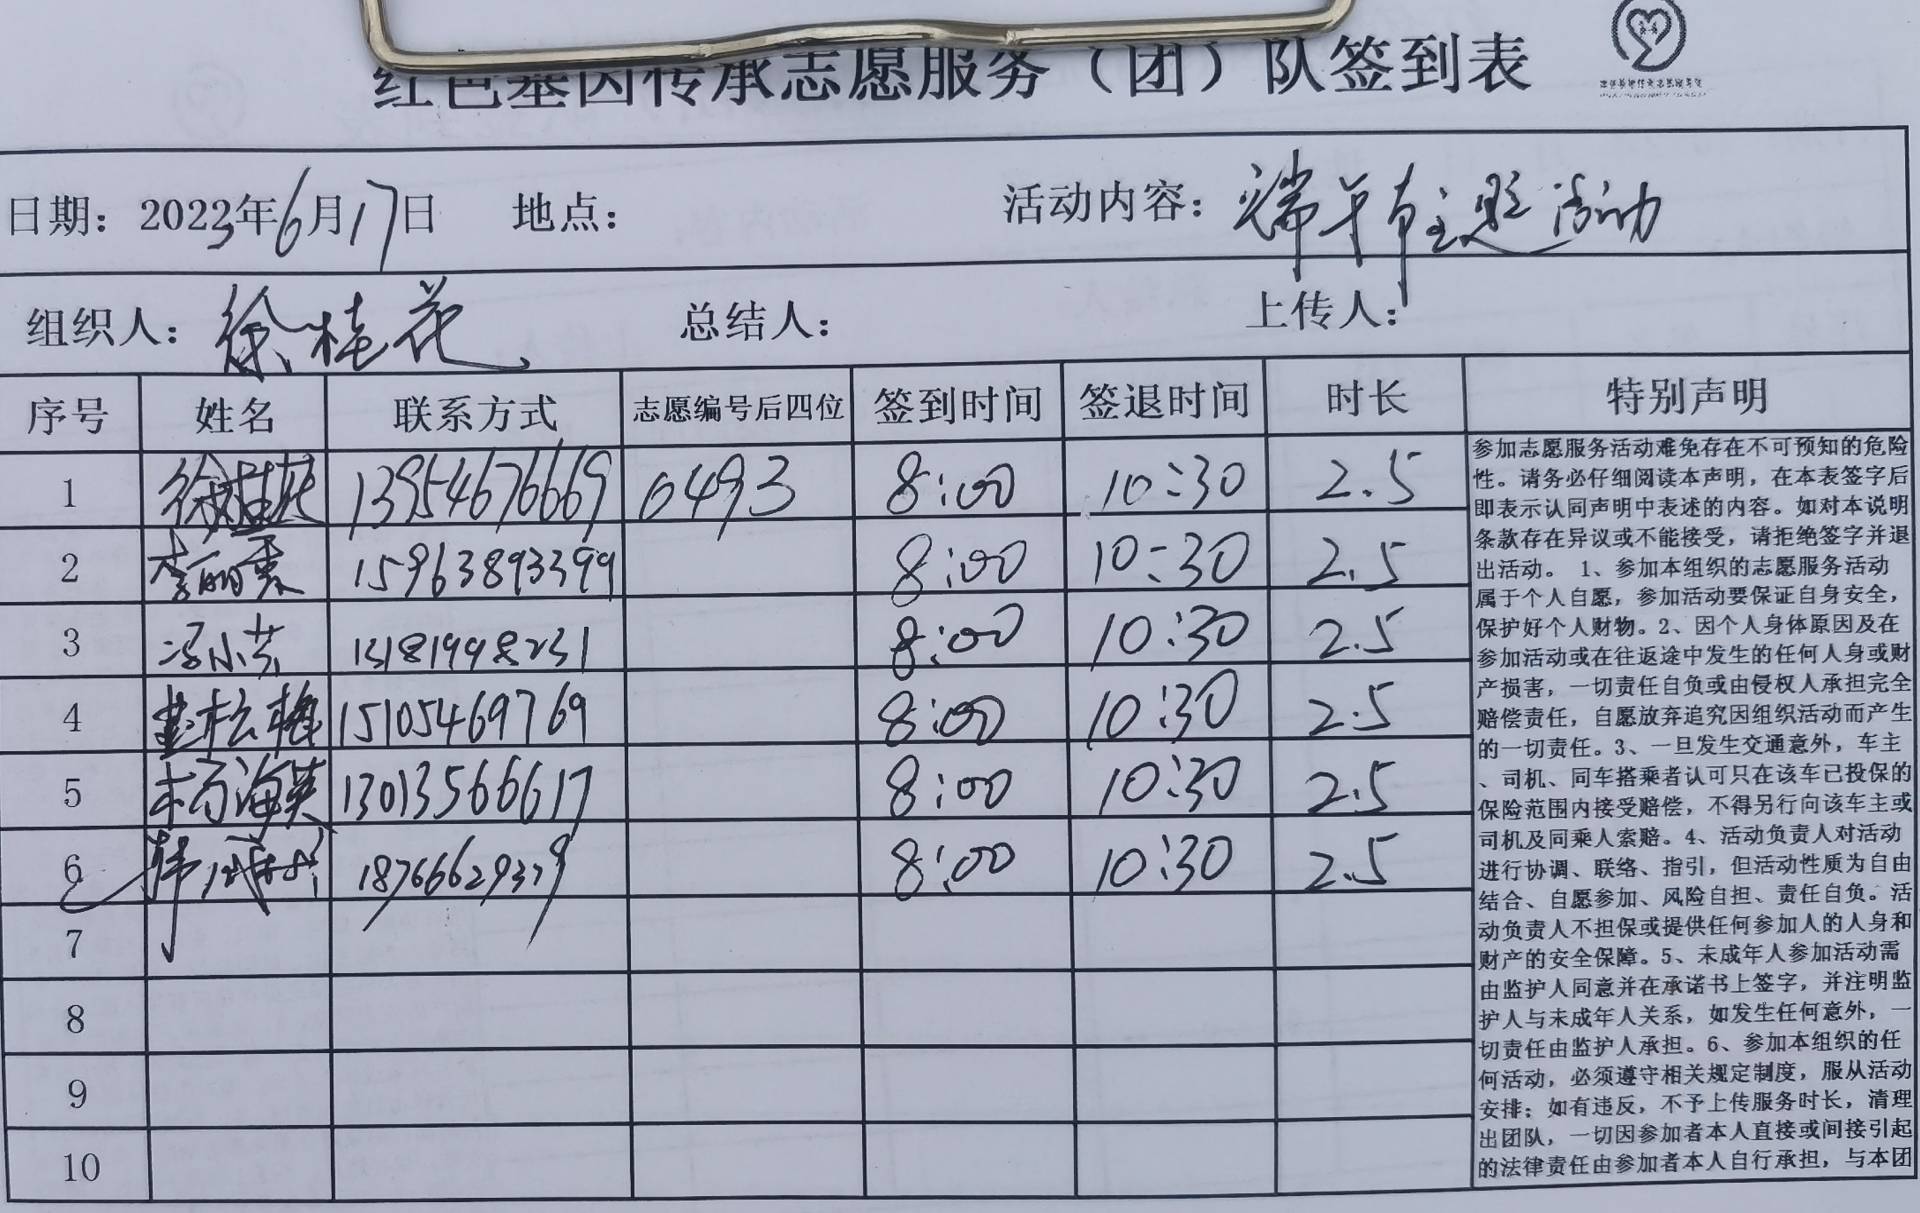 红色基因传承志愿服务（团）队签到表
日期：2023年6月17日 地点： 活动内容：端午节主题活动
组织人：徐桂花 总结人： 上传人：
序号 姓名 联系方式 志愿编号后四位 签到时间 签退时间 时长 特别声明
1 徐桂花 13954676669 0493 8:00 10:30 2.5
2 15963893399 8:00 10:30 2.5
3 冯小芳 13181998231 8:00 10:30 2.5
4 15105469769 8:00 10:30 2.5
5 杨海英 13013566617 8:00 10:30 2.5
6 18766629379 8:00 10:30 2.5
7
8
9
10
参加志愿服务活动难免存在不可预知的危险
性。请务必仔细阅读本声明，在本表签字后
即表示认同声明中表述的内容。如对本说明
条款存在异议或不能接受，请拒绝签字并退
出活动。 1、参加本组织的志愿服务活动
属于个人自愿，参加活动要保证自身安全，
保护好个人财物。2、因个人身体原因及在
参加活动或在往返途中发生的任何人身或财
产损害，一切责任自负或由侵权人承担完全
赔偿责任，自愿放弃追究因组织活动而产生
的一切责任。3、一旦发生交通意外，车主
、司机、同车搭乘者认可只在该车已投保的
保险范围内接受赔偿，不得另行向该车主或
司机及同乘人索赔。4、活动负责人对活动
进行协调、联络、指引，但活动性质为自由
结合、自愿参加、风险自担、责任自负。活
动负责人不担保或提供任何参加人的人身和
财产的安全保障。5、未成年人参加活动需
由监护人同意并在承诺书上签字，并注明监
护人与未成年人关系，如发生任何意外，一
切责任由监护人承担。6、参加本组织的任
何活动，必须遵守相关规定制度，服从活动
安排；如有违反，不予上传服务时长，清理
出团队，一切因参加者本人直接或间接引起
的法律责任由参加者本人自行承担，与本团